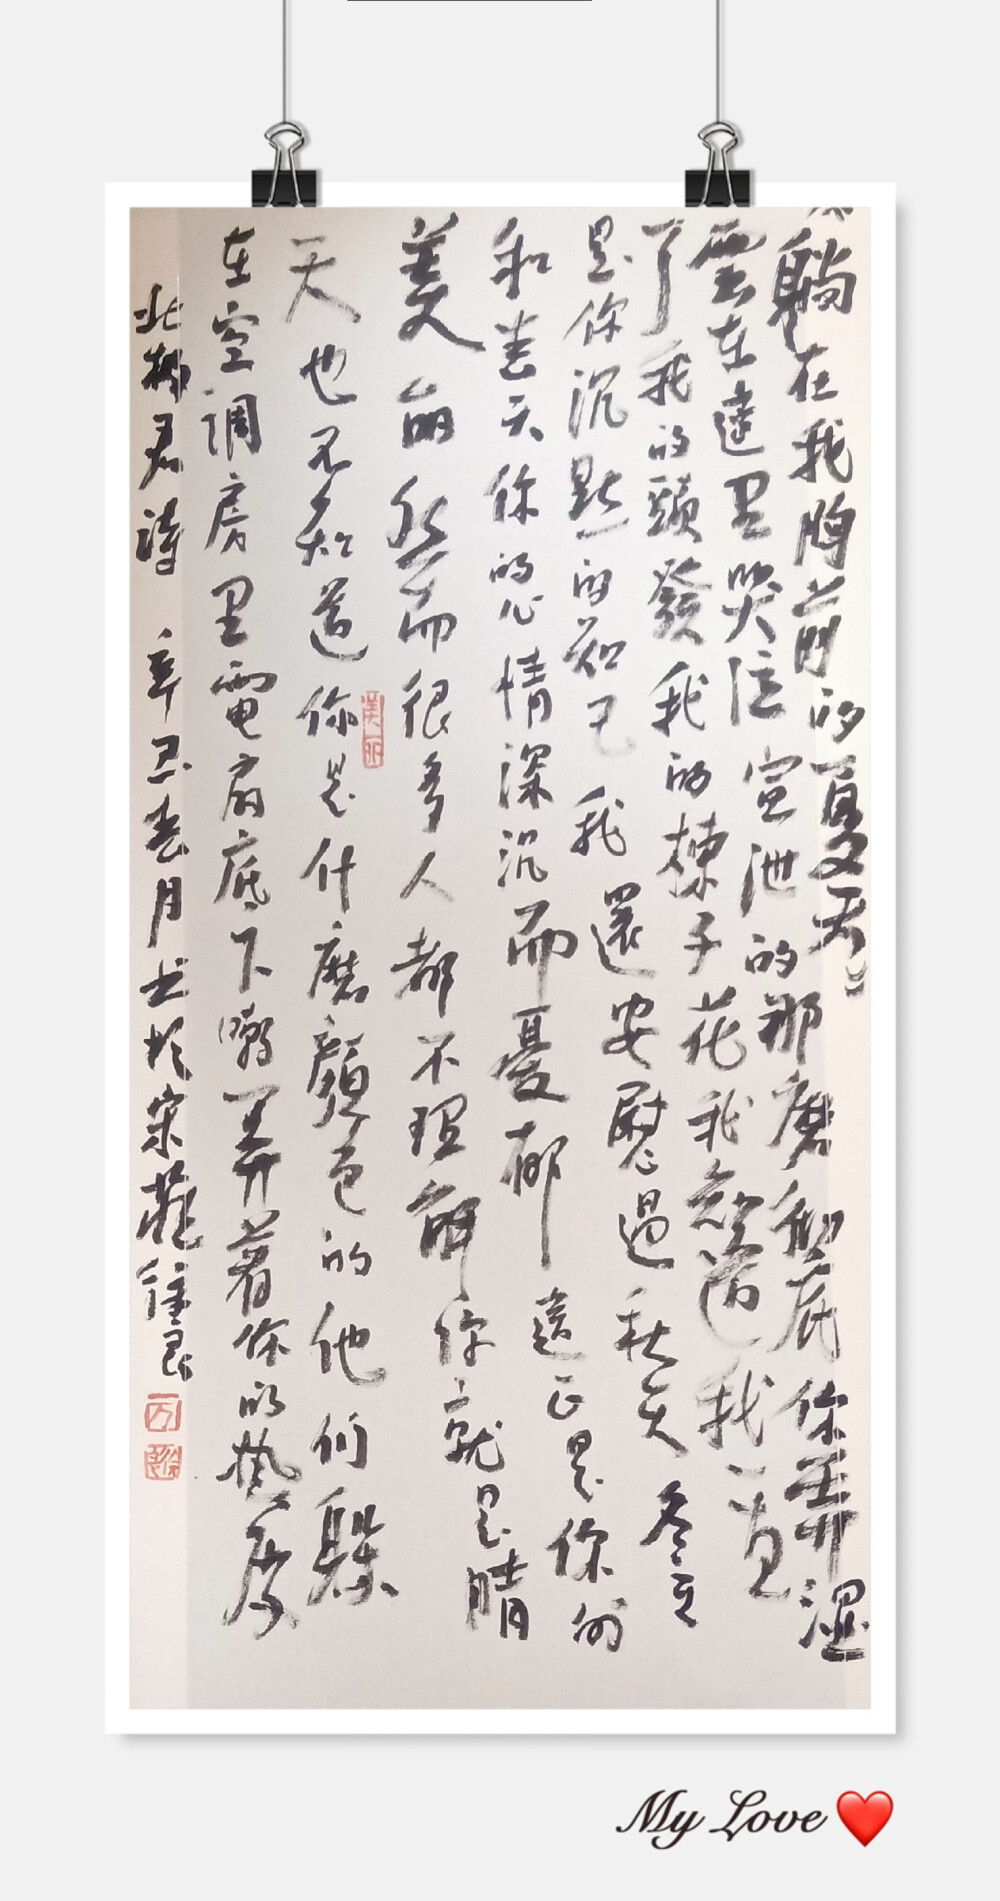 躺在我胸前的夏天
雲在遠里哭泣 宣泄的那麽彻底 你弄濕
了我的頭發 我的楝子花 我知道 我一直
是你沉默的知己 我還安慰過秋天 冬天
和春天 你的心情深沉而憂郁 這正是你的
美 美丽 然而很多人都不理解你 就是晴
天也不知道你是什麽顏色的 他们躲
在空調房里 電扇底下 嘲弄着你的热度
北柳君詩 辛丑春月 书於宋莊 信良
美丽
My Love